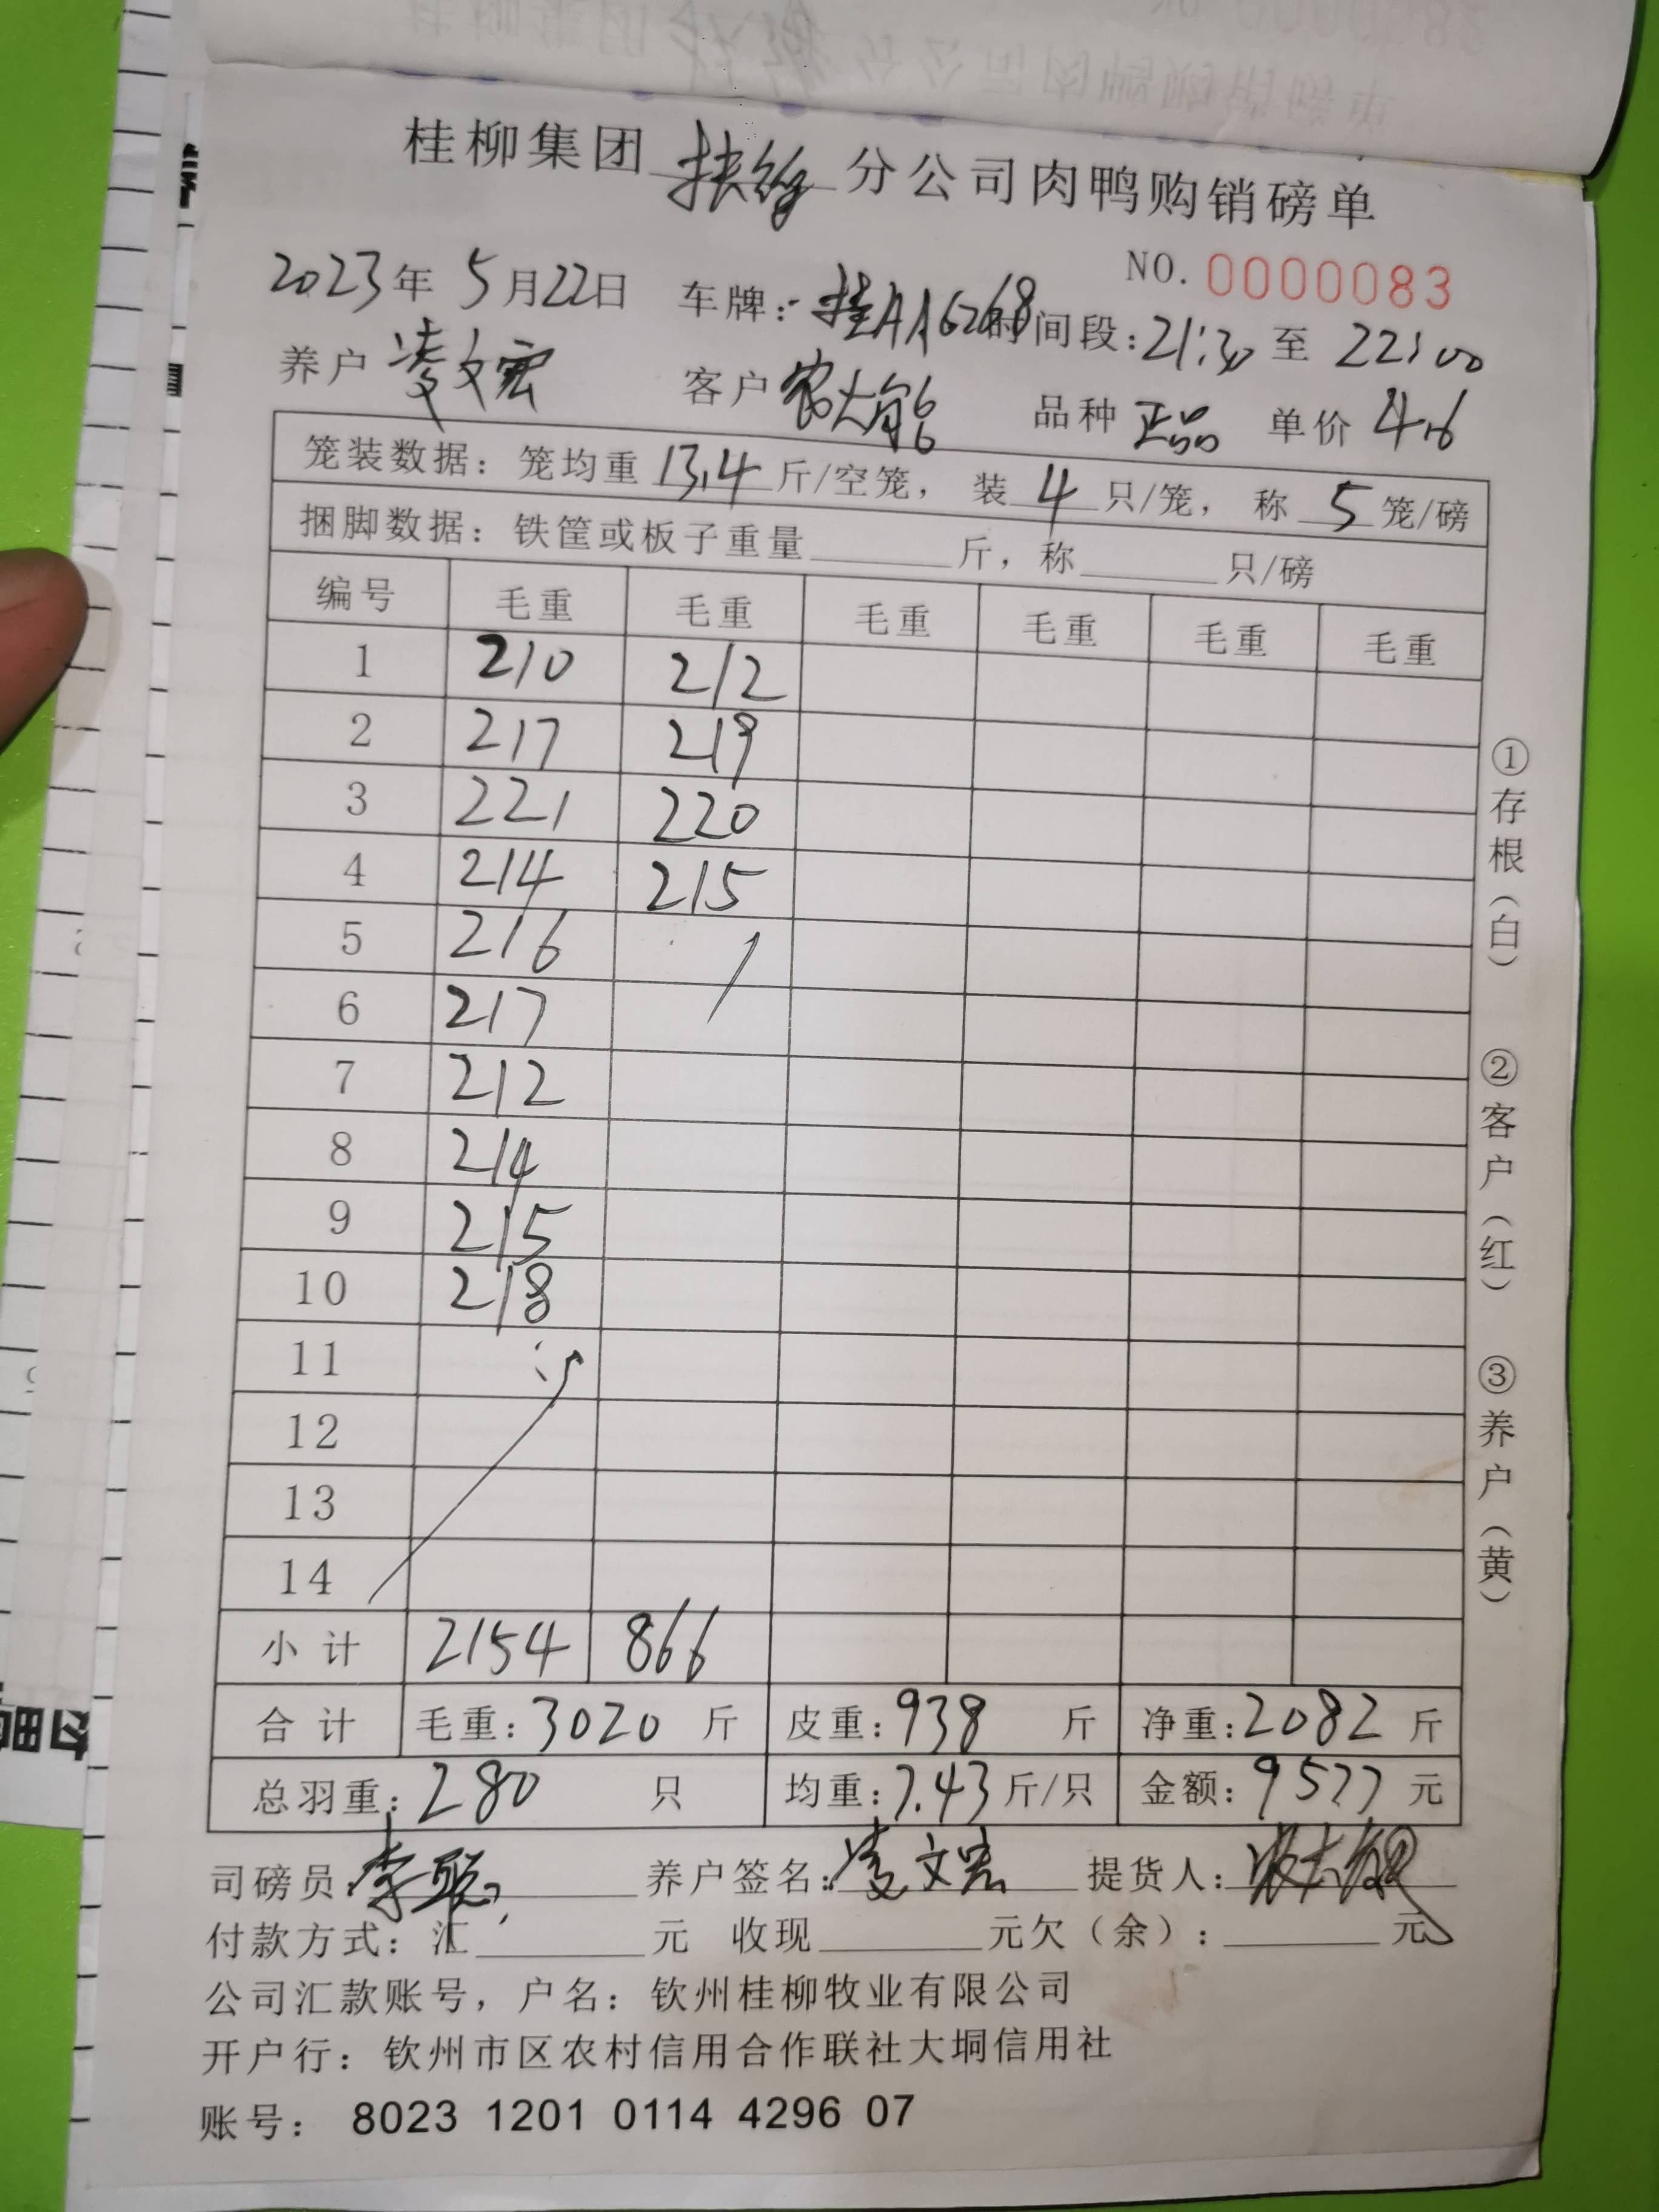 桂柳集团 扶绥 分公司肉鸭购销磅单
NO. 0000083
2023年 5月22日 车牌: 桂AA6268 时间段: 21:30 至 22:00
养户 凌文宏 客户 农大能 品种 正品 单价 4.6
笼装数据: 笼均重 13.4 斤/空笼, 装 4 只/笼, 称 5 笼/磅
捆脚数据: 铁筐或板子重量 斤, 称 只/磅
编号 毛重 毛重 毛重 毛重 毛重 毛重
1 210 212
2 217 219
3 221 220
4 214 215
5 216
6 217
7 212
8 214
9 215
10 218
11
12
13
14
小计 2154 866
合计 毛重: 3020 斤 皮重: 938 斤 净重: 2082 斤
总羽重: 280 只 均重: 7.43 斤/只 金额: 9577 元
司磅员: 李聪 养户签名: 凌文宏 提货人: 农大能
付款方式: 汇 元 收现 元欠(余): 元
公司汇款账号, 户名: 钦州桂柳牧业有限公司
开户行: 钦州市区农村信用合作联社大垌信用社
账号: 8023 1201 0114 4296 07
①存根(白) ②客户(红) ③养户(黄)